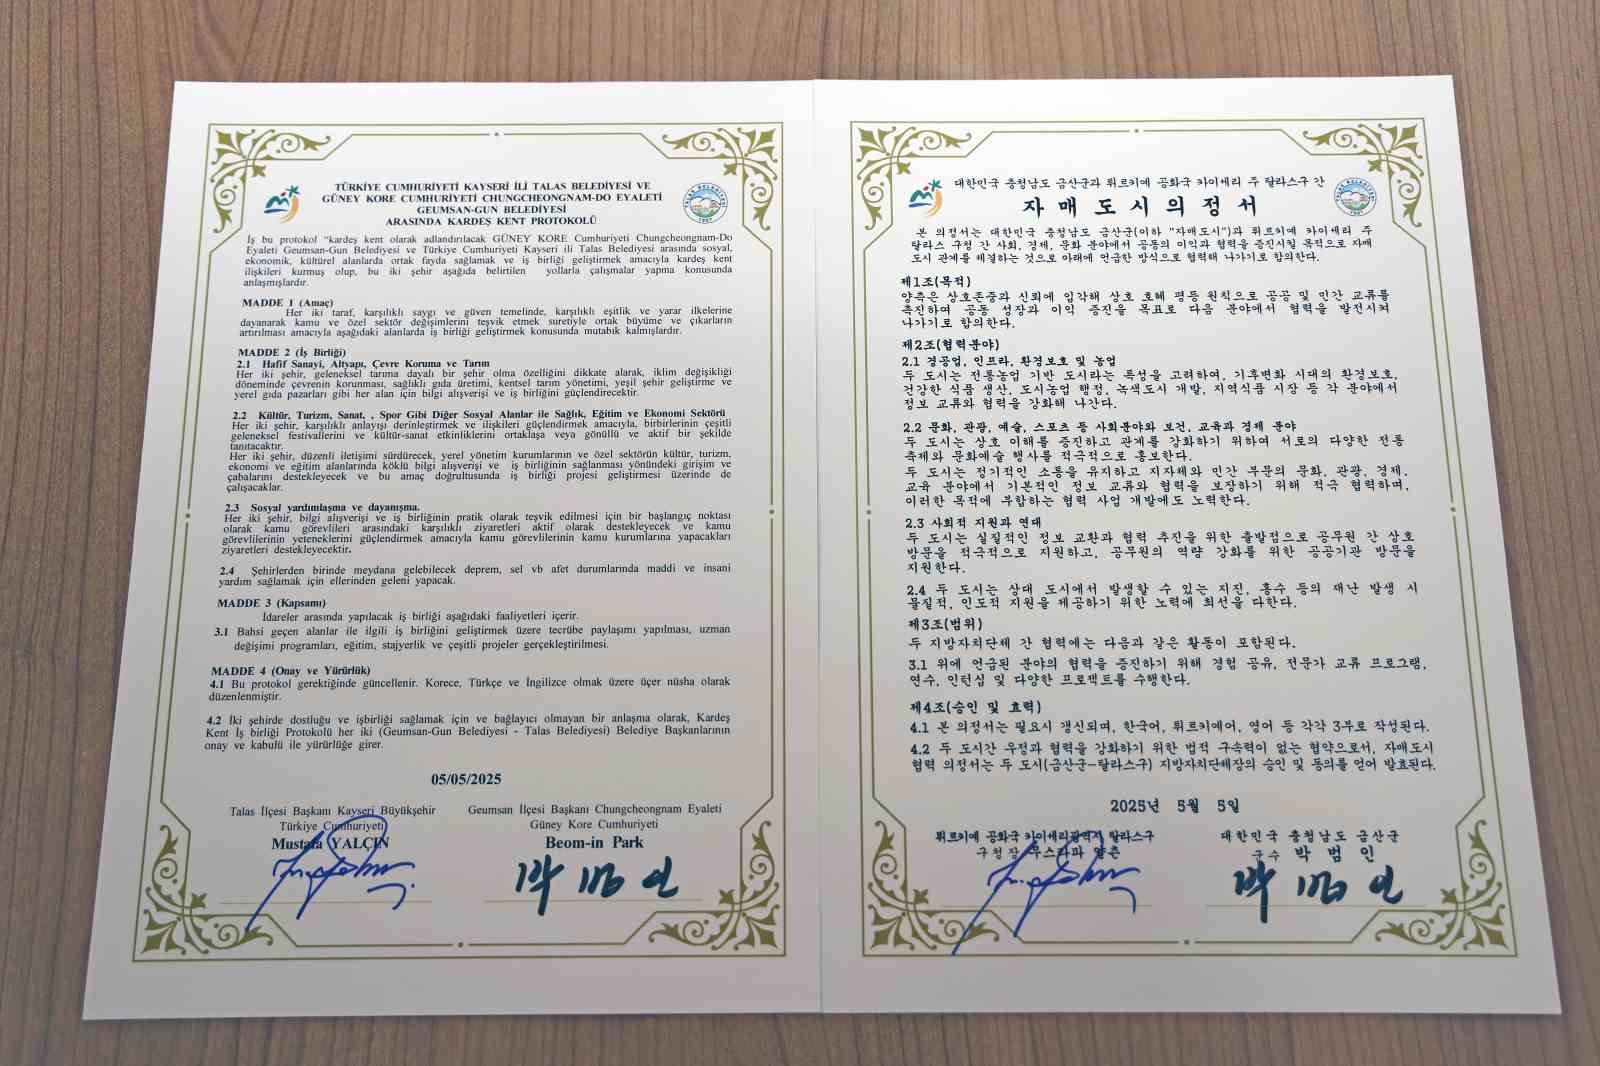 TÜRKİYE CUMHURİYETİ KAYSERİ İLİ TALAS BELEDİYESİ VE
GÜNEY KORE CUMHURİYETİ CHUNGCHEONGNAM-DO EYALETİ
GEUMSAN-GUN BELEDİYESİ
ARASINDA KARDEŞ KENT PROTOKOLÜ
İş bu protokol "kardeş kent olarak adlandırılacak GÜNEY KORE Cumhuriyeti Chungcheongnam-Do
Eyaleti Geumsan-Gun Belediyesi ve Türkiye Cumhuriyeti Kayseri ili Talas Belediyesi arasında sosyal,
ekonomik, kültürel alanlarda ortak fayda sağlamak ve iş birliği geliştirmek amacıyla kardeş kent
ilişkileri kurmuş olup, bu iki şehir aşağıda belirtilen yollarla çalışmalar yapma konusunda
anlaşmışlardır.
MADDE 1 (Amaç)
Her iki taraf, karşılıklı saygı ve güven temelinde, karşılıklı eşitlik ve yarar ilkelerine
dayanarak kamu ve özel sektör değişimlerini teşvik etmek suretiyle ortak büyüme ve çıkarların
artırılması amacıyla aşağıdaki alanlarda iş birliği geliştirmek konusunda mutabık kalmışlardır.
MADDE 2 (İş Birliği)
2.1 Hafif Sanayi, Altyapı, Çevre Koruma ve Tarım
Her iki şehir, geleneksel tarıma dayalı bir şehir olma özelliğini dikkate alarak, iklim değişikliği
döneminde çevrenin korunması, sağlıklı gıda üretimi, kentsel tarım yönetimi, yeşil şehir geliştirme ve
yerel gıda pazarları gibi her alan için bilgi alışverişi ve iş birliğini güçlendirecektir.
2.2 Kültür, Turizm, Sanat, , Spor Gibi Diğer Sosyal Alanlar ile Sağlık, Eğitim ve Ekonomi Sektörü
Her iki şehir, karşılıklı anlayışı derinleştirmek ve ilişkileri güçlendirmek amacıyla, birbirlerinin çeşitli
geleneksel festivallerini ve kültür-sanat etkinliklerini ortaklaşa veya gönüllü ve aktif bir şekilde
tanıtacaktır.
Her iki şehir, düzenli iletişimi sürdürecek, yerel yönetim kurumlarının ve özel sektörün kültür, turizm,
ekonomi ve eğitim alanlarında köklü bilgi alışverişi ve iş birliğinin sağlanması yönündeki girişim ve
çabalarını destekleyecek ve bu amaç doğrultusunda iş birliği projesi geliştirmesi üzerinde de
çalışacaklar.
2.3 Sosyal yardımlaşma ve dayanışma.
Her iki şehir, bilgi alışverişi ve iş birliğinin pratik olarak teşvik edilmesi için bir başlangıç noktası
olarak kamu görevlileri arasındaki karşılıklı ziyaretleri aktif olarak destekleyecek ve kamu
görevlilerinin yeteneklerini güçlendirmek amacıyla kamu görevlilerinin kamu kurumlarına yapacakları
ziyaretleri destekleyecektir.
2.4 Şehirlerden birinde meydana gelebilecek deprem, sel vb afet durumlarında maddi ve insani
yardım sağlamak için ellerinden geleni yapacak.
MADDE 3 (Kapsamı)
İdareler arasında yapılacak iş birliği aşağıdaki faaliyetleri içerir.
3.1 Bahsi geçen alanlar ile ilgili iş birliğini geliştirmek üzere tecrübe paylaşımı yapılması, uzman
değişimi programları, eğitim, stajyerlik ve çeşitli projeler gerçekleştirilmesi.
MADDE 4 (Onay ve Yürürlük)
4.1 Bu protokol gerektiğinde güncellenir. Korece, Türkçe ve İngilizce olmak üzere üçer nüsha olarak
düzenlenmiştir.
4.2 İki şehirde dostluğu ve işbirliği sağlamak için ve bağlayıcı olmayan bir anlaşma olarak, Kardeş
Kent İş birliği Protokolü her iki (Geumsan-Gun Belediyesi - Talas Belediyesi) Belediye Başkanlarının
onay ve kabulü ile yürürlüğe girer.
05/05/2025
Talas İlçesi Başkanı Kayseri Büyükşehir
Türkiye Cumhuriyeti
Mustafa YALÇIN
Geumsan İlçesi Başkanı Chungcheongnam Eyaleti
Güney Kore Cumhuriyeti
Beom-in Park
박범인
대한민국 충청남도 금산군과 튀르키예 공화국 카이세리 주 탈라스구 간
자매도시의정서
본 의정서는 대한민국 충청남도 금산군(이하 "자매도시")과 튀르키예 카이세리 주
탈라스 구청 간 사회, 경제, 문화 분야에서 공동의 이익과 협력을 증진시킬 목적으로 자매
도시 관계를 체결하는 것으로 아래에 언급한 방식으로 협력해 나가기로 합의한다.
제1조(목적)
양측은 상호존중과 신뢰에 입각해 상호 호혜 평등 원칙으로 공공 및 민간 교류를
촉진하여 공동 성장과 이익 증진을 목표로 다음 분야에서 협력을 발전시켜
나가기로 합의한다.
제2조(협력분야)
2.1 경공업, 인프라, 환경보호 및 농업
두 도시는 전통농업 기반 도시라는 특성을 고려하여, 기후변화 시대의 환경보호,
건강한 식품 생산, 도시농업 행정, 녹색도시 개발, 지역식품 시장 등 각 분야에서
정보 교류와 협력을 강화해 나간다.
2.2 문화, 관광, 예술, 스포츠 등 사회분야와 보건, 교육과 경제 분야
두 도시는 상호 이해를 증진하고 관계를 강화하기 위하여 서로의 다양한 전통
축제와 문화예술 행사를 적극적으로 홍보한다.
두 도시는 정기적인 소통을 유지하고 지자체와 민간 부문의 문화, 관광, 경제,
교육 분야에서 기본적인 정보 교류와 협력을 보장하기 위해 적극 협력하며,
이러한 목적에 부합하는 협력 사업 개발에도 노력한다.
2.3 사회적 지원과 연대
두 도시는 실질적인 정보 교환과 협력 추진을 위한 출발점으로 공무원 간 상호
방문을 적극적으로 지원하고, 공무원의 역량 강화를 위한 공공기관 방문을
지원한다.
2.4 두 도시는 상대 도시에서 발생할 수 있는 지진, 홍수 등의 재난 발생 시
물질적, 인도적 지원을 제공하기 위한 노력에 최선을 다한다.
제3조(범위)
두 지방자치단체 간 협력에는 다음과 같은 활동이 포함된다.
3.1 위에 언급된 분야의 협력을 증진하기 위해 경험 공유, 전문가 교류 프로그램,
연수, 인턴십 및 다양한 프로젝트를 수행한다.
제4조(승인 및 효력)
4.1 본 의정서는 필요시 갱신되며, 한국어, 튀르키예어, 영어 등 각각 3부로 작성된다.
4.2 두 도시간 우정과 협력을 강화하기 위한 법적 구속력이 없는 협약으로서, 자매도시
협력 의정서는 두 도시(금산군-탈라스구) 지방자치단체장의 승인 및 동의를 얻어 발효된다.
2025년 5월 5일
튀르키예 공화국 카이세리광역시 탈라스구
구청장 무스타파 얄츤
대한민국 충청남도 금산군
군수 박 범 인
박범인